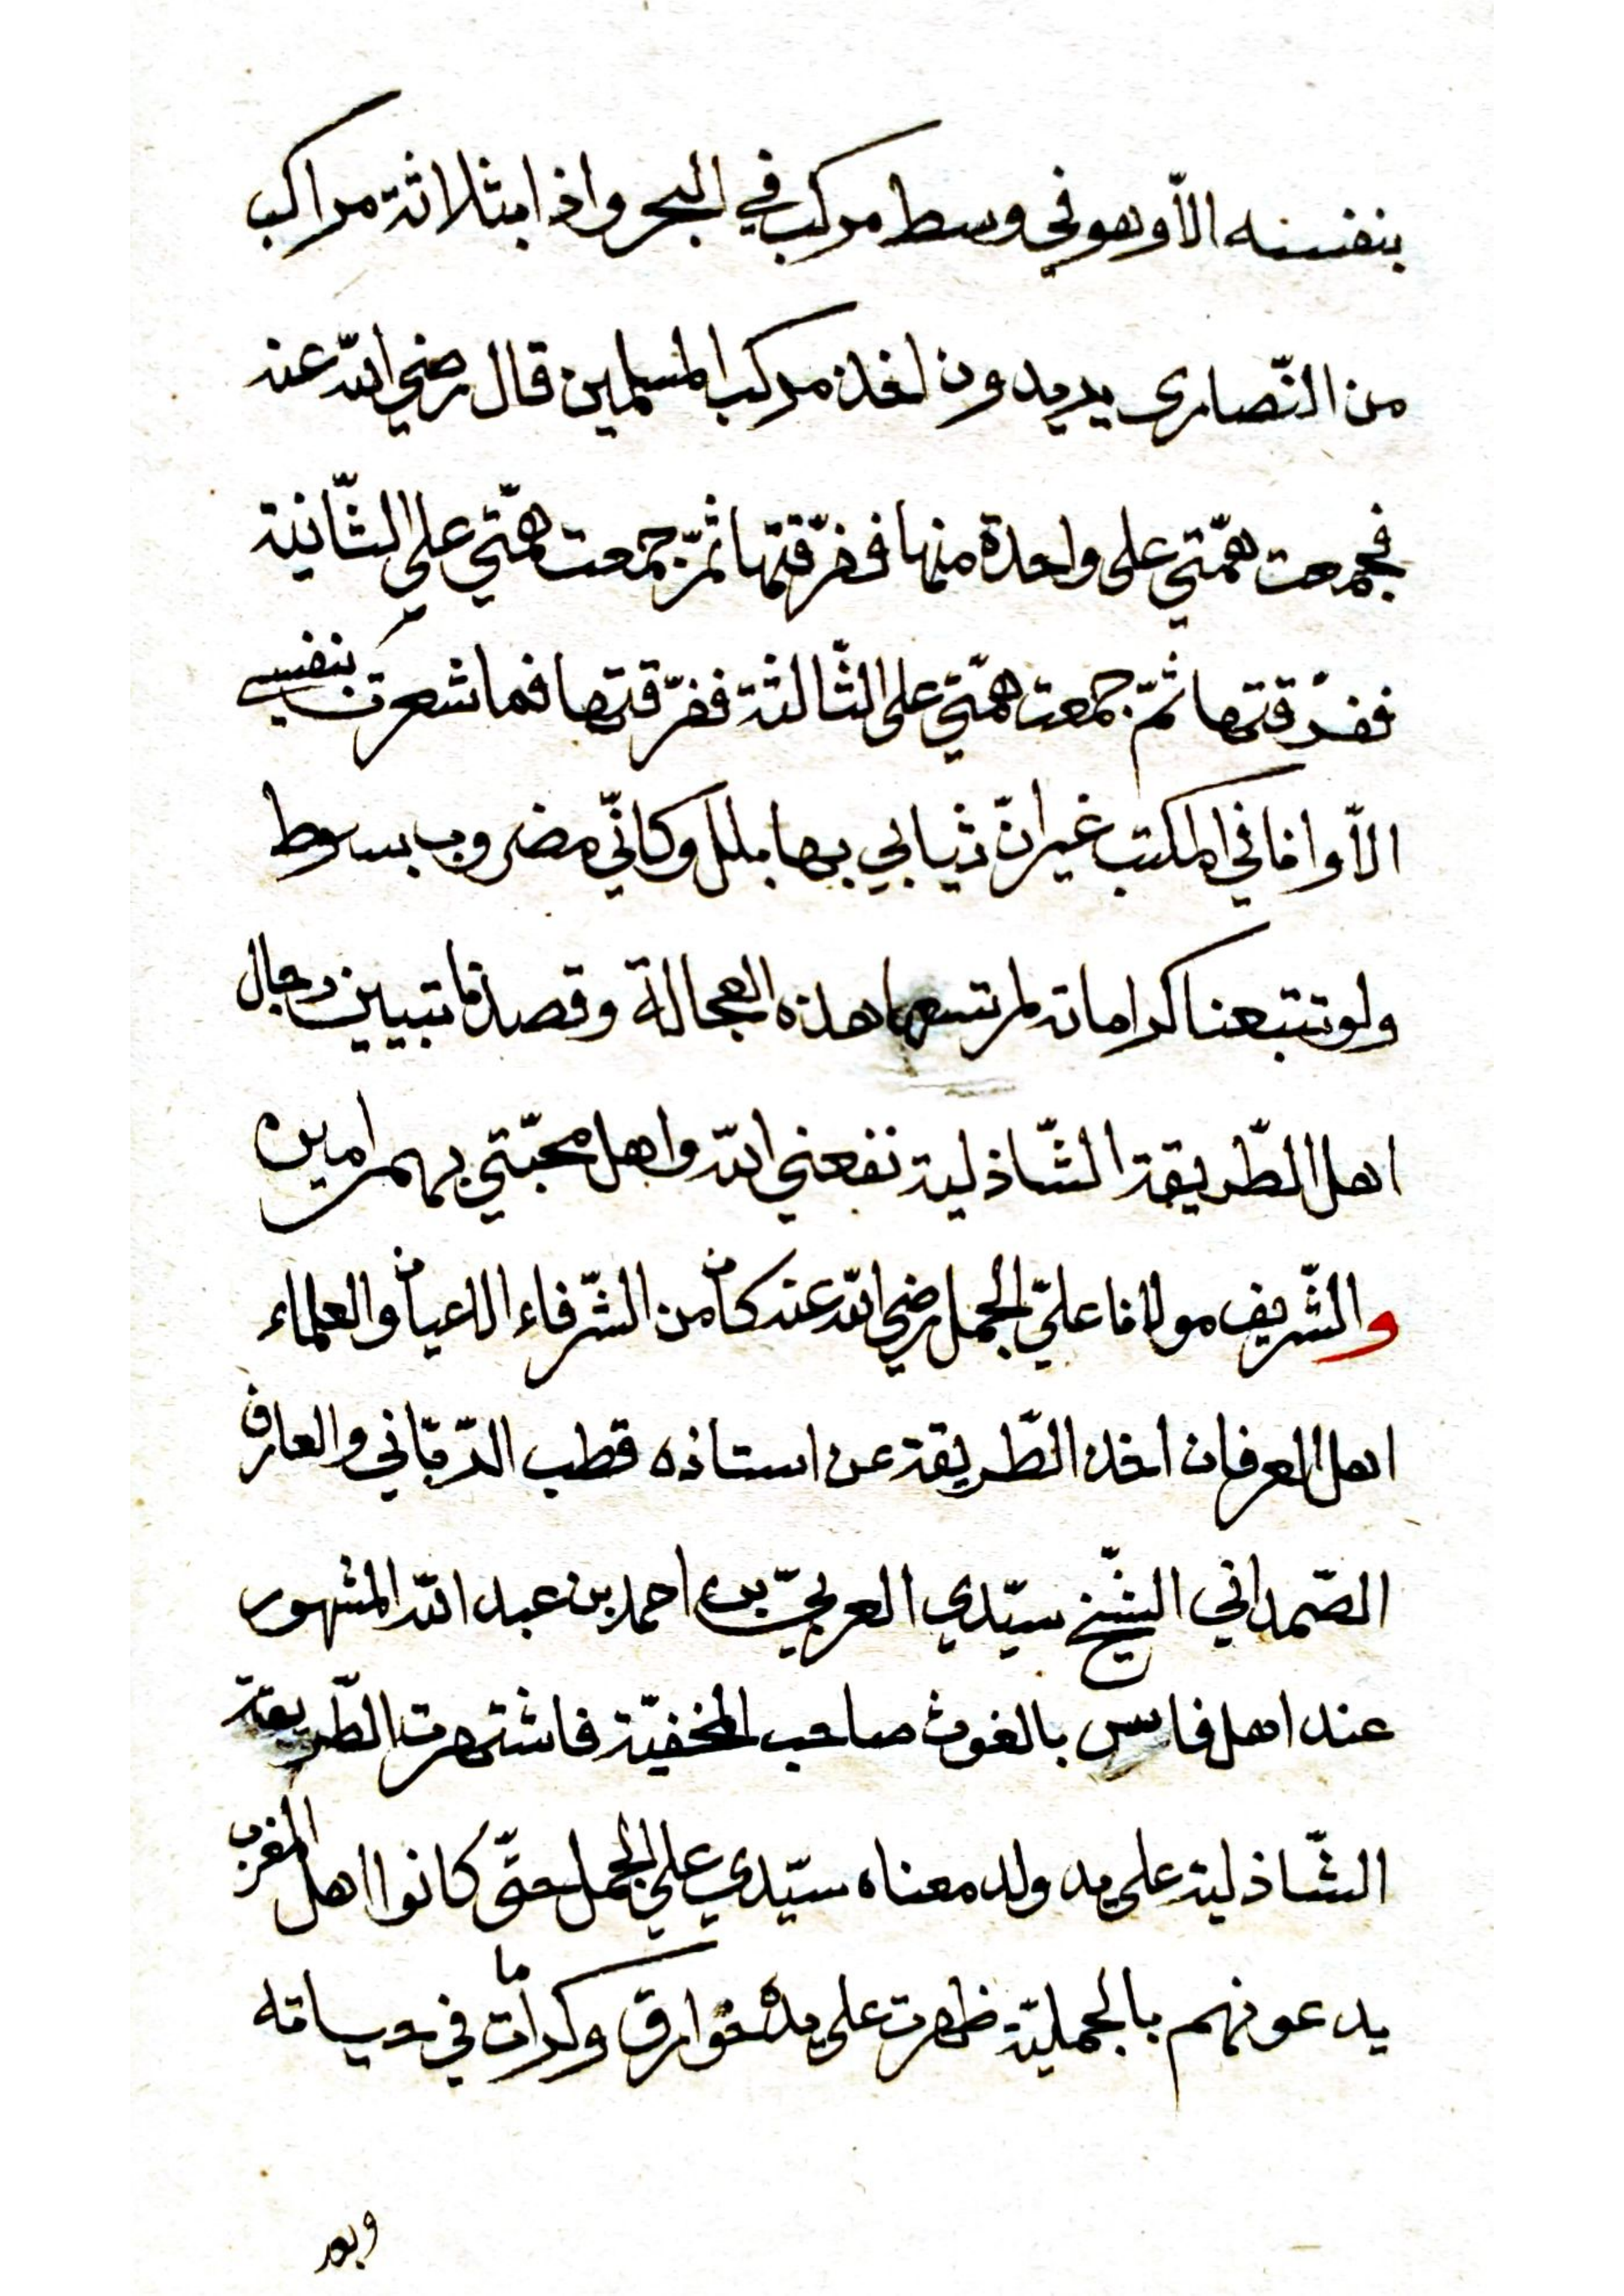 بنفسه الّا وهو في وسط مركب في البحر واذا بثلاثة مراكب
من النّصارى يريدون اخذ مركب المسلمين قال رضي اللّه عنه
فجمعت همّتي على واحدة منها ففرّقتها ثمّ جمعت همّتي على الثّانية
ففرّقتها ثمّ جمعت همّتي على الثّالثة ففرّقتها فما شعرت بنفسي
الّا وانا في المكتب غير انّ ثيابي بها بلل وكانّي مضروب بسوط
ولو تتبعنا كراماته لم تسعها هذه العجالة وقصدنا تبيين رجال
اهل الطّريقة الشّاذلية نفعني اللّه واهل محبّتي بهم امين
والشّريف مولانا عليّ الجمل رضي اللّه عنه كان من الشّرفاء الاعيان والعلماء
اهل العرفان اخذ الطّريقة عن استاذه قطب الرّبّاني والعارف
الصّمداني الشّيخ سيّدي العربيّ بن احمد بن عبد اللّه المشهور
عند اهل فاس بالغوث صاحب المخفيّة فاشتهرت الطّريقة
الشّاذلية على يد ولد معناه سيّدي علي الجمل حتّى كانوا اهل المغرب
يدعونهم بالجمليّة ظهرت على يده خوارق وكرامات في حياته
وبعد